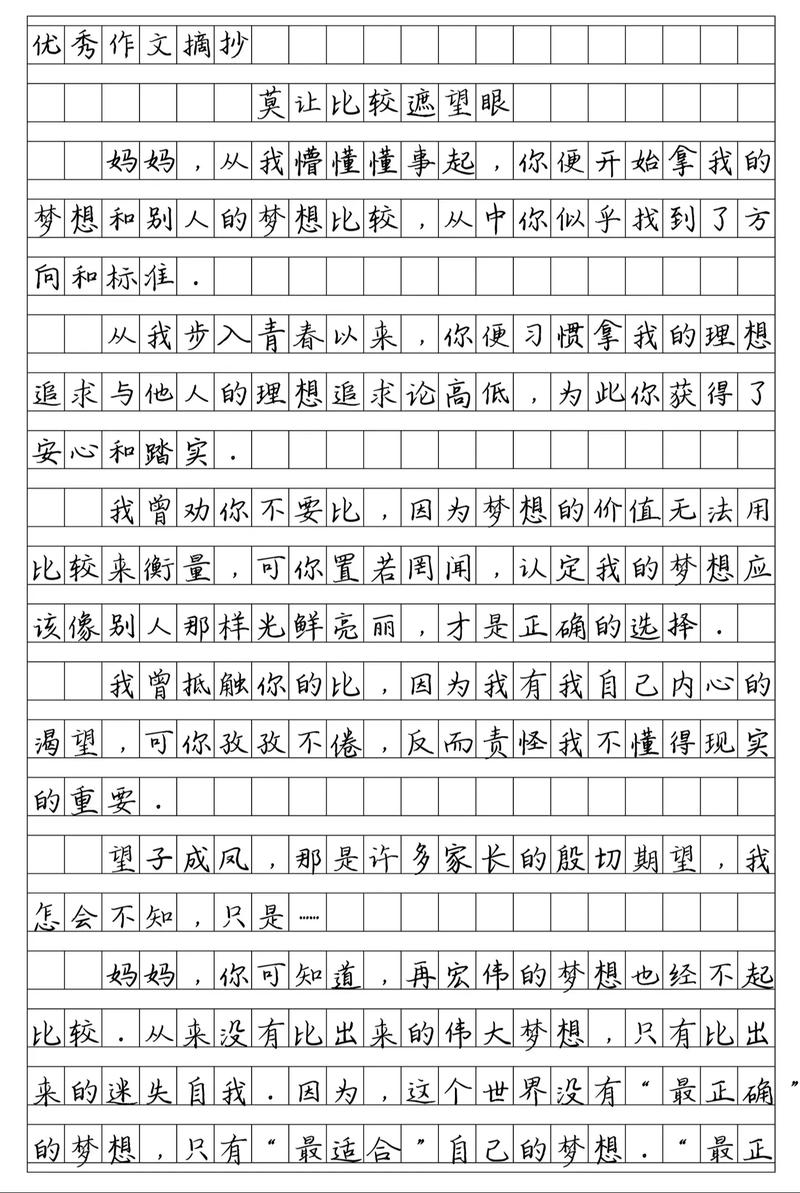 优秀作文摘抄
莫让比较遮望眼
妈妈，从我懵懂懂事起，你便开始拿我的
梦想和别人的梦想比较，从中你似乎找到了方
向和标准．
从我步入青春以来，你便习惯拿我的理想
追求与他人的理想追求论高低，为此你获得了
安心和踏实．
我曾劝你不要比，因为梦想的价值无法用
比较来衡量，可你置若罔闻，认定我的梦想应
该像别人那样光鲜亮丽，才是正确的选择．
我曾抵触你的比，因为我有我自己内心的
渴望，可你孜孜不倦，反而责怪我不懂得现实
的重要．
望子成凤，那是许多家长的殷切期望，我
怎会不知，只是……
妈妈，你可知道，再宏伟的梦想也经不起
比较．从来没有比出来的伟大梦想，只有比出
来的迷失自我．因为，这个世界没有“最正确”
的梦想，只有“最适合”自己的梦想．“最正